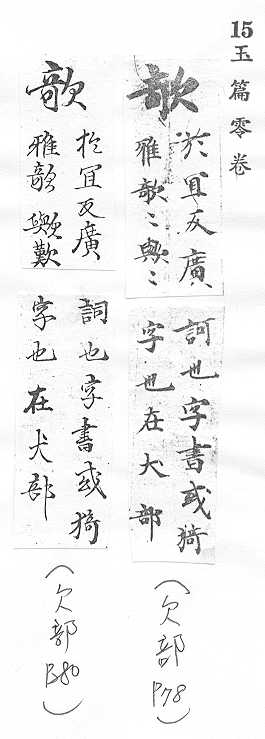 15玉篇零卷
欹
於冝反廣
雅欹〻歟〻
訶也字書或猗
字也在犬部
(欠部P78)
欹
於冝反廣
雅欹歟歎
詞也字書或猗
字也在犬部
(欠部P80)